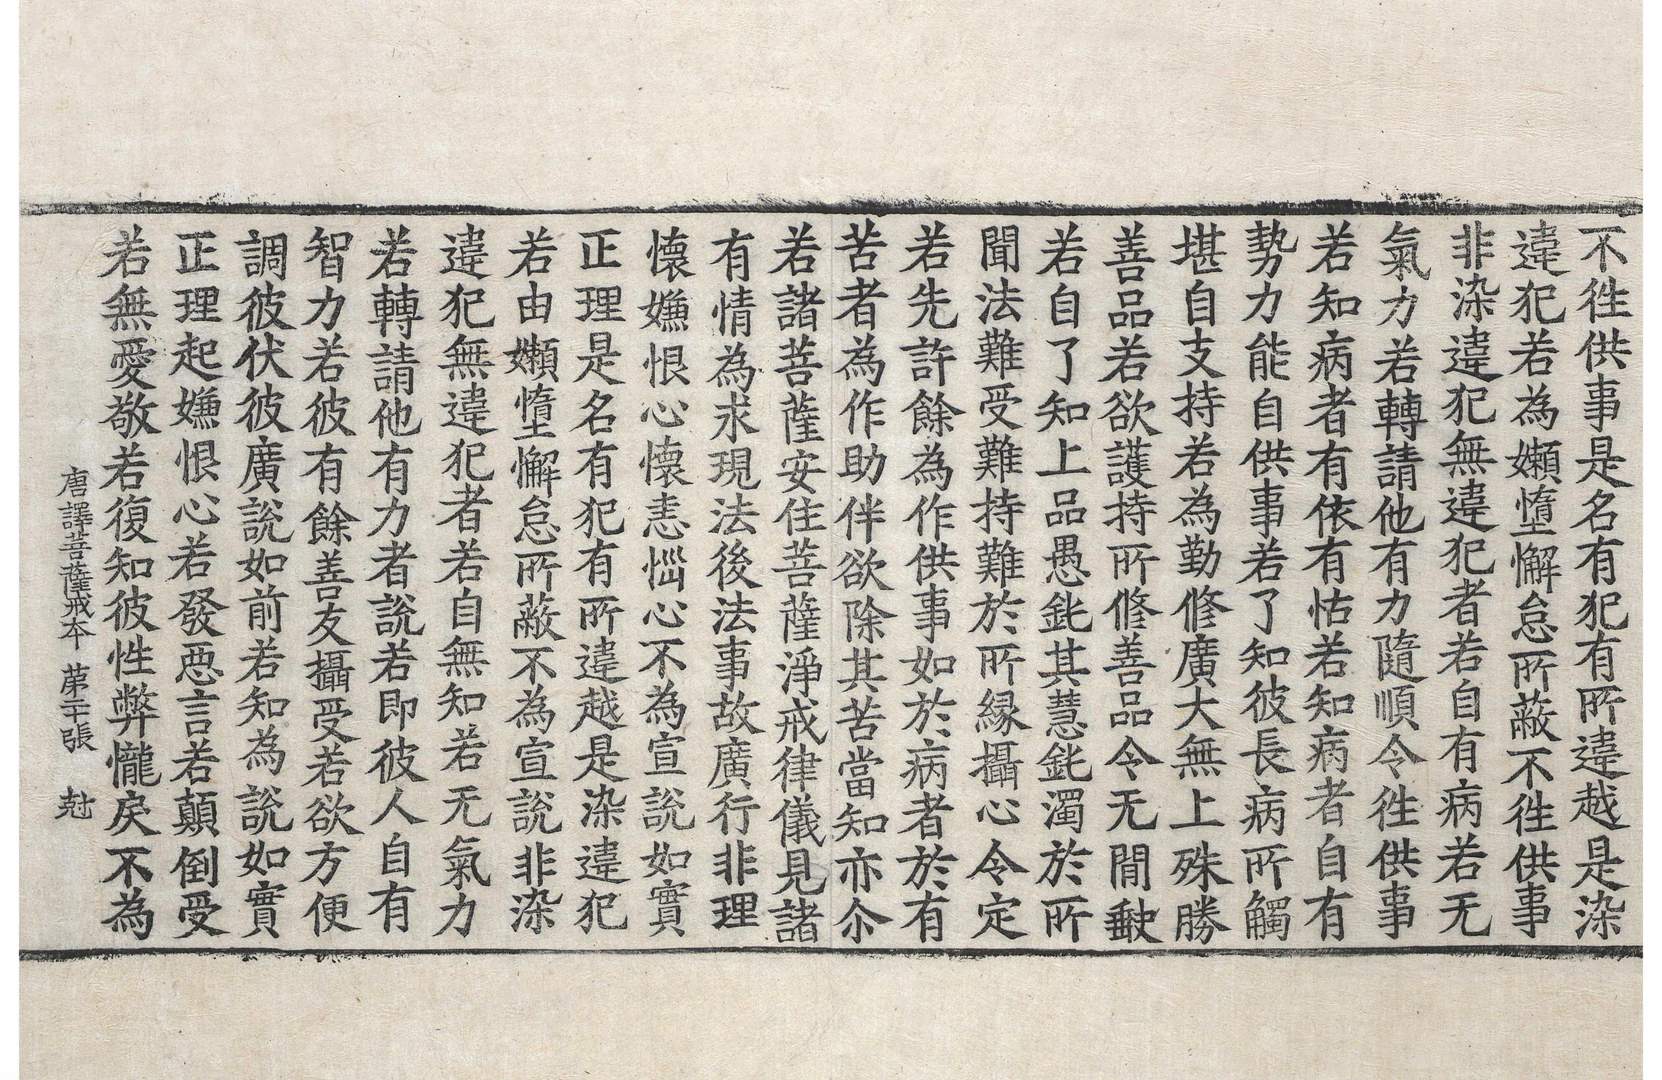 不徃供事是名有犯有所違越是染
違犯若為嬾墮懈怠所蔽不徃供事
非染違犯無違犯者若自有病若无
氣力若轉請他有力隨順令徃供事
若知病者有依有怙若知病者自有
勢力能自供事若了知彼長病所觸
堪自支持若為勤修廣大無上殊勝
善品若欲護持所修善品令无間𡙇
若自了知上品愚鈍其慧鈍濁於所
聞法難受難持難於所縁攝心令定
若先許餘為作供事如於病者於有
苦者為作助伴欲除其苦當知亦尒
若諸菩薩安住菩薩淨戒律儀見諸
有情為求現法後法事故廣行非理
懷嫌恨心懷恚惱心不為宣說如實
正理是名有犯有所違越是染違犯
若由嬾墮懈怠所蔽不為宣說非染
違犯無違犯者若自無知若无氣力
若轉請他有力者說若即彼人自有
智力若彼有餘善友攝受若欲方便
調彼伏彼廣說如前若知為說如實
正理起嫌恨心若發惡言若顛倒受
若無愛敬若復知彼性弊㦨戾不為
唐譯菩薩戒本 苐二十張 尅